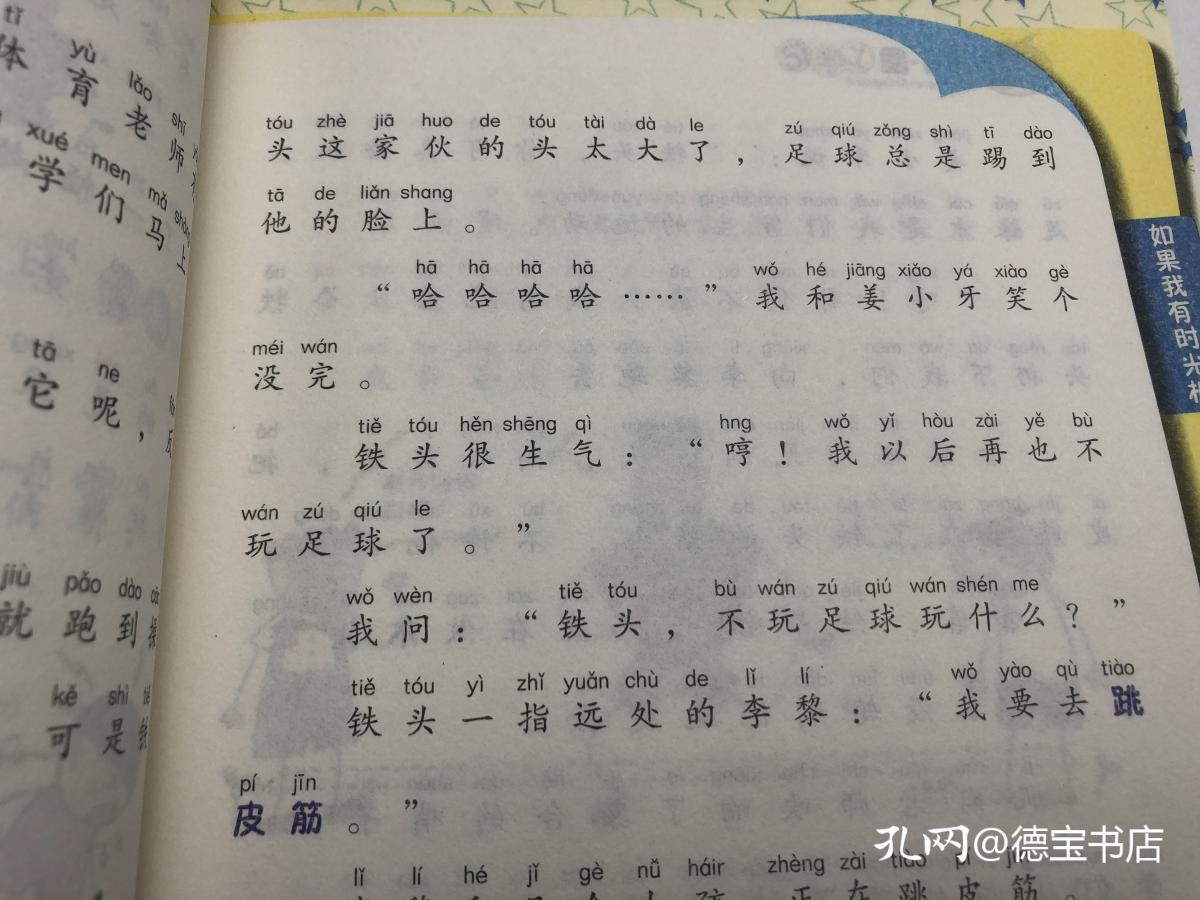 tǐ
体 育 老 师
yù lǎo shī
xué men mǎ shàng
学 们 马 上
tā ne
它 呢，
jiù pǎo dào
就 跑 到
kě shì
可 是
tóu zhè jiā huo de tóu tài dà le zú qiú zǒng shì tī dào
头 这 家 伙 的 头 太 大 了，足 球 总 是 踢 到
tā de liǎn shang
他 的 脸 上。
hā hā hā hā wǒ hé jiāng xiǎo yá xiào gè
“哈 哈 哈 哈……”我 和 姜 小 牙 笑 个
méi wán
没 完。
tiě tóu hěn shēng qì hng wǒ yǐ hòu zài yě bù
铁 头 很 生 气：“哼！我 以 后 再 也 不
wán zú qiú le
玩 足 球 了。”
wǒ wèn tiě tóu bù wán zú qiú wán shén me
我 问：“铁 头，不 玩 足 球 玩 什 么？”
tiě tóu yì zhǐ yuǎn chù de lǐ lí wǒ yào qù tiào
铁 头 一 指 远 处 的 李 黎：“我 要 去 跳
pí jīn
皮 筋。”
lǐ lí hé jǐ gè nǚ háir zhèng zài tiào pí jīn
正 在 跳 皮 筋。
如果我有时光机
孔网@德宝书店